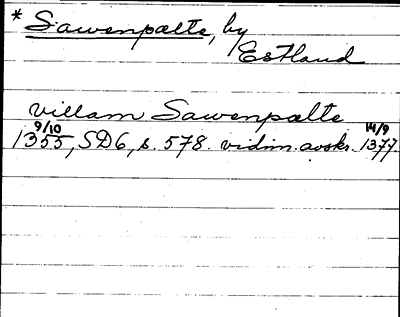 * Sawenpælte, by
Estland
villam Sawenpælte
9/10 14/9
1355, SD6, s. 578. vidim. avskr. 1377.